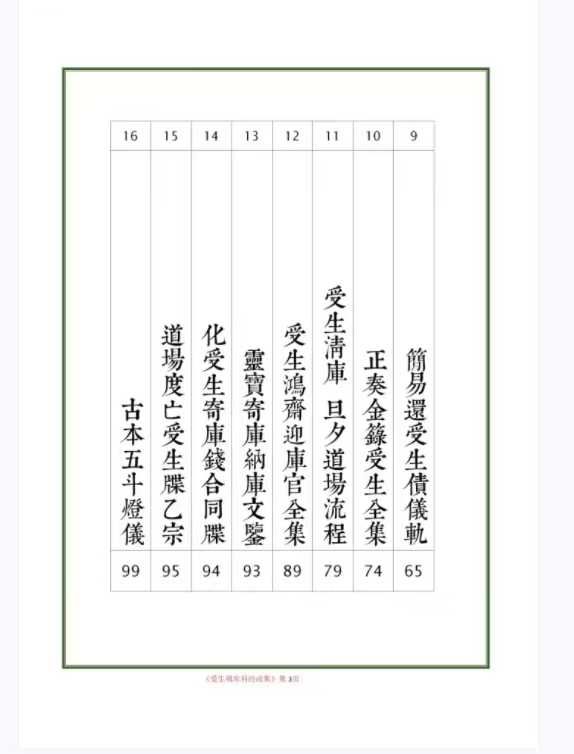 9
簡易還受生債儀軌
65
10
正奏金籙受生全集
74
11
受生清庫 旦夕道場流程
79
12
受生鴻齋迎庫官全集
89
13
靈寶寄庫納庫文鑒
93
14
化受生寄庫錢合同牒
94
15
道場度亡受生牒乙宗
95
16
古本五斗燈儀
99